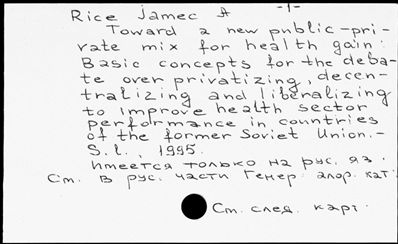 Rice Jamec A -1-
Toward a new public-pri-
vate mix for health gain:
Basic concepts for the deba-
te over privatizing, decen-
tralizing and liberalizing
to improve health sector
performance in countries
of the former Soviet Union.-
S.l., 1995.
имеется только на рус. яз.
См. в рус. части Генер. алф. кат.
См. след. карт.